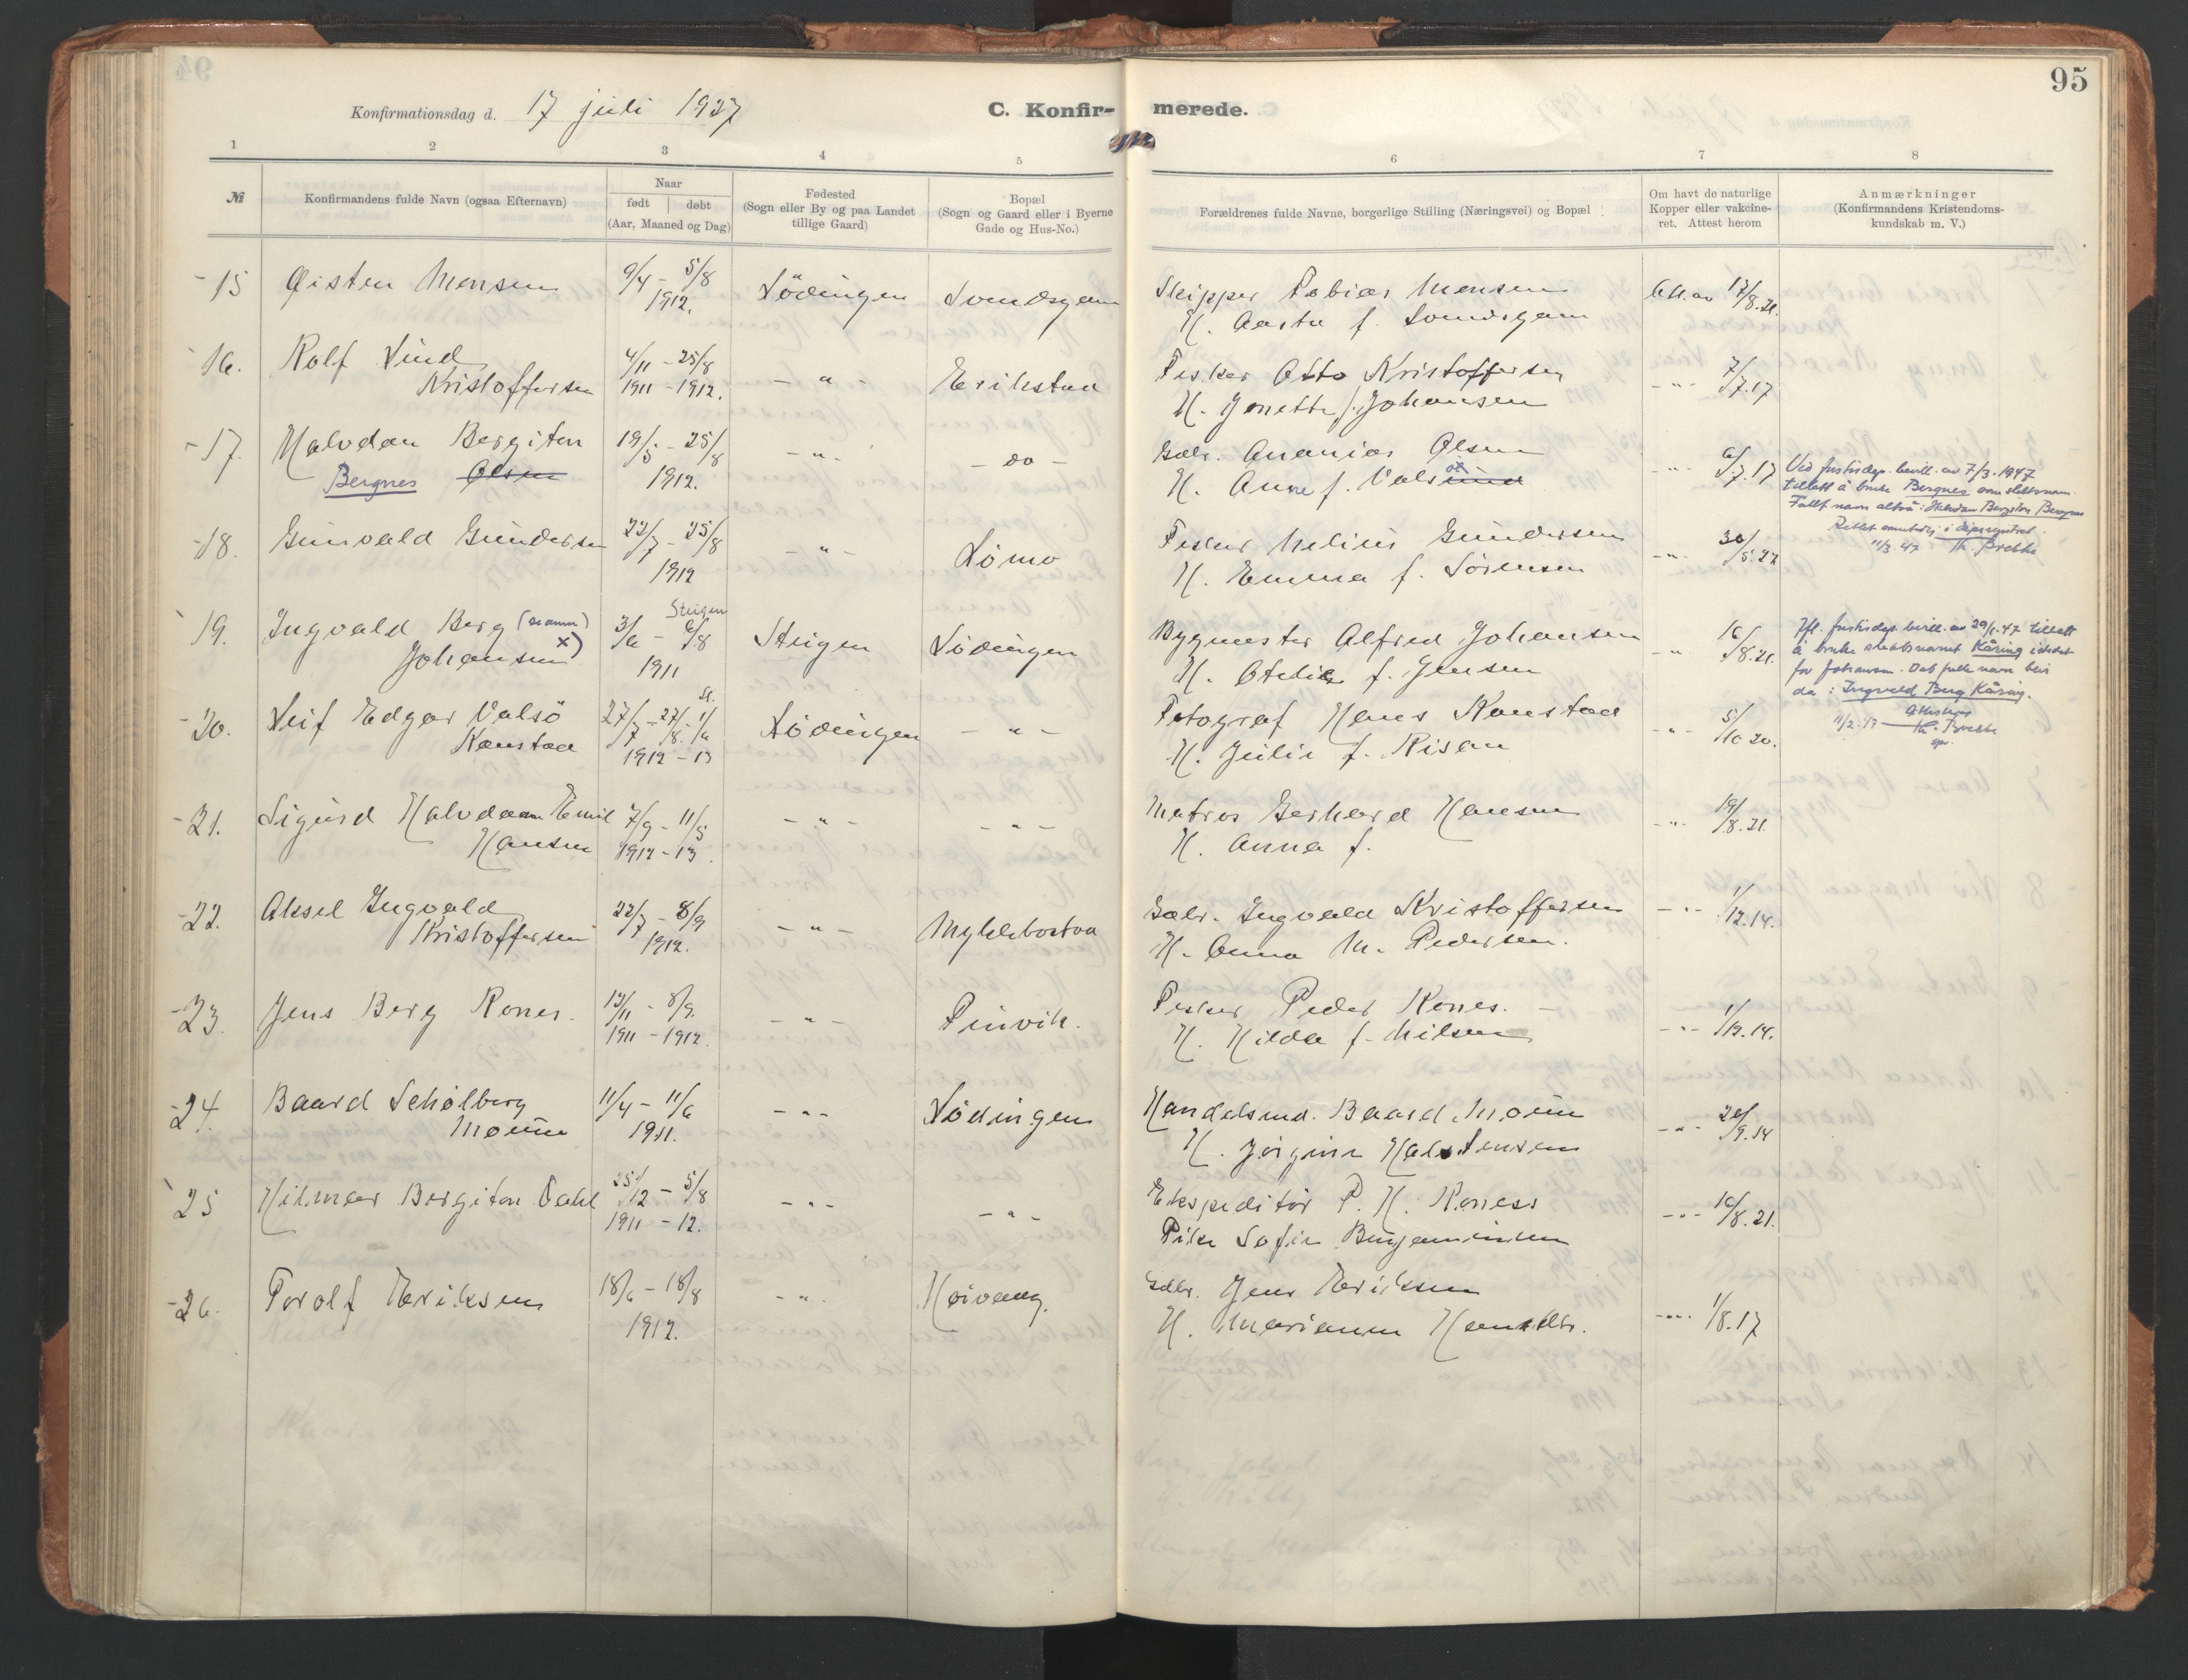 95
Konfirmationsdag d. 17 juli 1927
C. Konfir- merede.
1 2 3 4 5 6 7 8
№
Konfirmandens fulde Navn (ogsaa Efternavn)
Naar
født døbt
(Aar, Maaned og Dag)
Fødested
(Sogn eller By og paa Landet
tillige Gaard)
Bopæl
(Sogn og Gaard eller i Byerne
Gade og Hus-No.)
Forældrenes fulde Navne, borgerlige Stilling (Næringsvei) og Bopæl
Om havt de naturlige
Kopper eller vakcine-
ret. Attest herom
Anmærkninger
(Konfirmandens Kristendoms-
kundskab m. V.)
15 Øisten Monsen 9/4 - 5/8 Lödingen Skipper Tobias Monsen 17/8.21.
1912. H. Aasta f.
16. Rolf Lind 4/11 - 25/8 - " - Erikstad Fisker Otto Kristoffersen - " - 7/7.17
Kristoffersen 1911 - 1912. H. Jonette f. Johansen
17. Halvdan Bergiton 19/5 - 25/8 - " - - do - Gbr. Ananias Olsen - " - 6/7.17
Bergnes Olsen 1912. H. Anna f.
Ved justisdep. bevill. av 7/3. 1947
tillatt å bruke Bergnes som slektsnavn
Fullt navn altså: Halvdan Bergiton Bergnes
Rettet samtidig i dåpsregistret.
11/3. 47 Th. Brekke
18. Gunvald Gundersen 22/7 - 25/8 - " - Lömo Fisker Nelius Gundersen - " - 30/5.27
1912 H. Emma f. Sörensen
Steigen
19. Ingvald Berg 3/6 - 6/8 Steigen Lödingen Bygmester Alfred Johansen - " - 16/8.21.
Johansen x) 1911 H. Otelie f. Jensen
Ifl. justisdep. bevill. av 29/1. 47 tillatt
å bruke slektsnavnet Kåring istedet
for Johansen. Det fulle navn blir
da: Ingvald Berg Kåring.
Attesteres
11/2.47 Th. Brekke
spr.
20. Leif Edgar Valsö 27/7 - 27/8 - 1/6 Lödingen - " - Fotograf Hans Kanstad - " - 5/10 20.
Kanstad 1912 - 13 H. Julie f. Risan
21. Sigurd Halvdan Emil 7/9 - 11/5 - " - - " - Matros Gerhard Hansen - " - 19/8.21.
Hansen 1912 - 13. H. Anna f.
22. Aksel Ingvald 22/7 - 8/9 - " - Myklebostad Gbr. Ingvald Kristoffersen - " - 1/12.14.
Kristoffersen 1912. H. Anna M. Pedersen.
23. Jens Berg Rones. 13/11 - 8/9. - " - Finvik. Fisker Peder Rones. - - " - 1/12.14.
1911 - 1912. H. Hilda f. Nilsen
24. Baard Schølberg 11/4 - 11/6 - " - Lödingen Handelsmd. Baard Moum - " - 20/9.14
Moum 1911. H. Jörgine Halstensen
25 Hilmar Bergiton Dahl 25/12 - 5/8 - " - - " - Ekspeditör P. H. Roness - " - 16/8.21.
1911 - 12. Pike Sofie Benjaminsen
26. Torolf Eriksen 18/6 - 18/8 - " - Höivang. Gbr. Jens Eriksen
1912. H. Marianne - " - 1/8.17